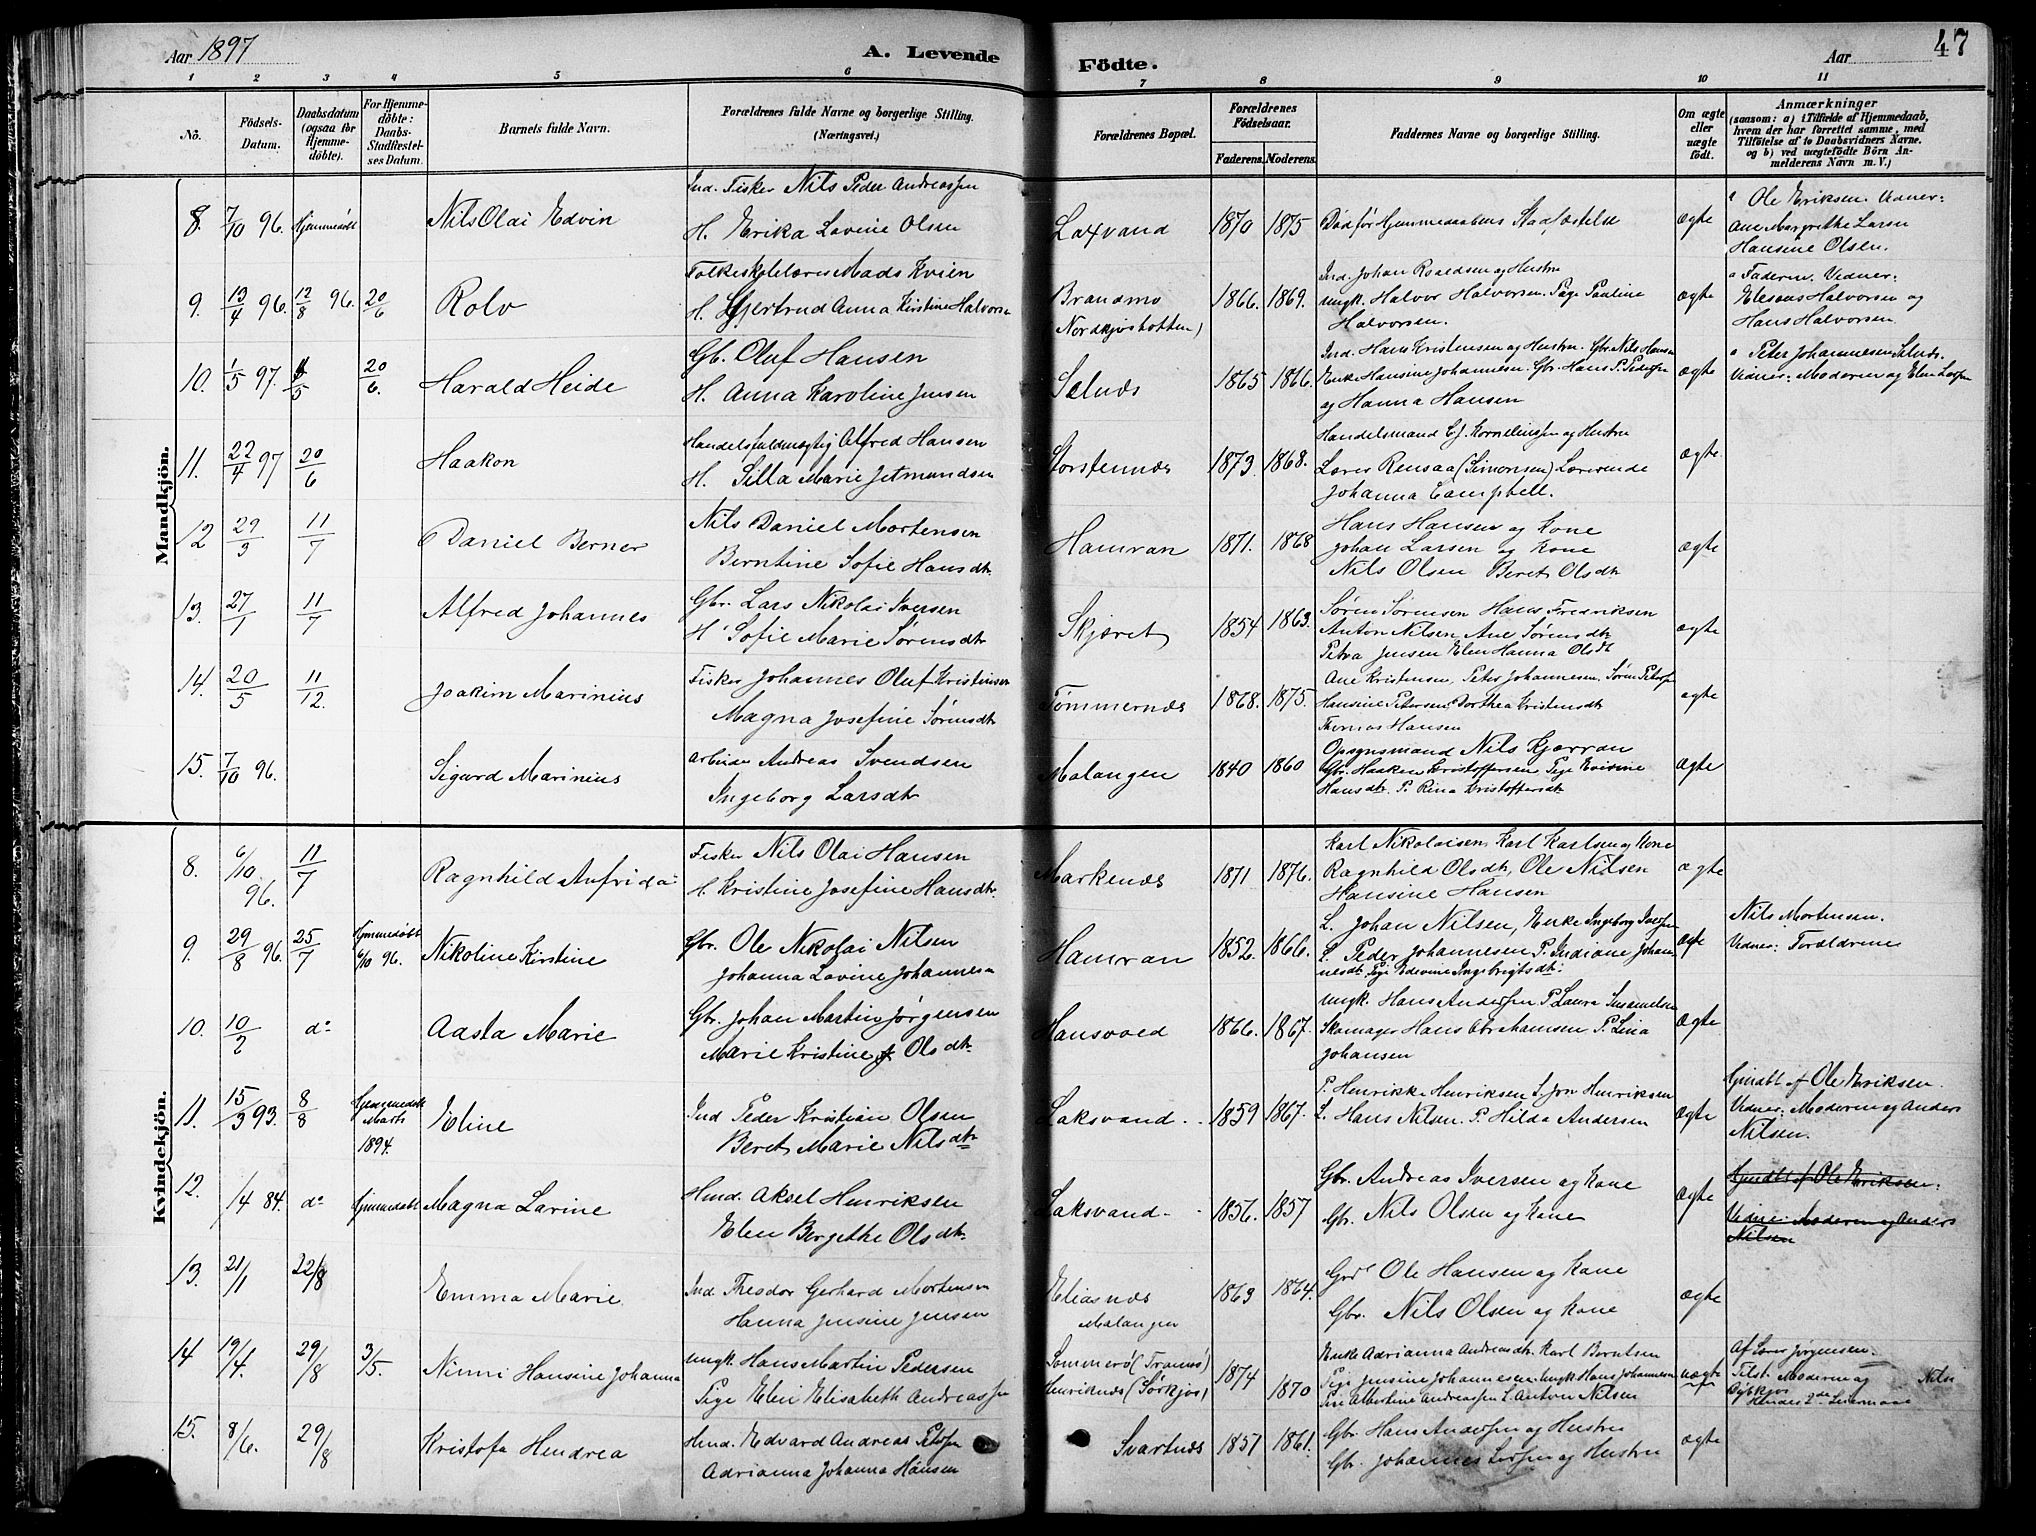 Aar 1897
A. Levende
Födte.
Aar
47
1 2 3 4 5 6 7 8 9 10 11
No.
Födsels-Datum.
Daabsdatum (ogsaa for Hjemme-döbte).
For Hjemme-döbte: Daabs-Stadfæstel-ses Datum.
Barnets fulde Navn.
Forældrenes fulde Navne og borgerlige Stilling. (Næringsvei.)
Forældrenes Bopæl.
Forældrenes Födselsaar.
Faderens. Moderens.
Faddernes Navne og borgerlige Stilling.
Om ægte eller uægte födt.
Anmærkninger
(saasom: a) i Tilfælde af Hjemmedaab,
hvem der har forrettet samme, med
Tilföielse af to Daabsvidners Navne.
og b) ved uægtefödte Börn An-
melderens Navn m. V.)
Mandkjön.
8. 7/10 96. Hjemmedöbt Nils Olai Edvin
Ind. Fisker Nils Peder Andreassen
H. Erika Lovine Olsen
Laxvand 1870 1875 Död för Hjemmedaabens Stadfæstelse ægte
a Ole Eriksen. Vidner:
Ane Margrethe Larsen
Hansine Olsen.
9. 13/4 96. 12/8 96. 20/6 Rolv
Folkeskolelærer Mads Kvien
H. Gjertrud Anna Kirstine Halvorsen
Brandmo
Nordkjosbotten)
1866. 1869.
Ind. Johan Roaldsen og Hustru
ungk. Halvor Halvorsen. Pige Pauline
Halvorsen.
ægte
a Faderen. Vidner:
Elesæus Halvorsen og
Hans Halvorsen
10. 1/5 97. /5 20/6. Harald Heide
Gb. Oluf Hansen
H. Anna Karoline Jensen
Sælnes 1865 1866.
Ind. Hans Kristensen og Hustru. Gbr. Nils Hansen
Enke Hansine Johannesen. Gbr. Hans P. Pedersen
og Hanna Hansen
ægte
a Peter Johannesen Sælnes.
Vidner: Moderen og Elen Larsen
11. 22/4 97 20/6 Haakon
Handelsfuldmægtig Alfred Hansen
H. Silla Marie Jetmundsen
Storstennæs 1873 1868.
Handelsmand Chr. Korneliussen og Hustru
Lærer Rensaa (Simonsen) Lærerinde
Johanna Campbell.
ægte
12 29/3 11/7 Daniel Berner
Nils Daniel Mortensen
Berntine Sofie Hansdtr.
Hamvan 1871. 1868
Hans Hansen og Kone
Johan Larsen og Kone
Nils Olsen Beret Olsdtr
ægte
13. 27/1 11/7 Alfred Johannes
Gbr. Lars Nikolai Iversen
H. Sofie Marie Sörensdtr
Skjæret 1854 1863.
Sören Sörensen Hans Fredriksen
Anton Nilsen, Ane Sörensdtr
Petra Jensen Elen Hanna Olsdtr
ægte
14. 20/5 11/12. Joakim Marinius
Fisker Johannes Oluf Kristensen
Magna Josefine Sörensdtr
Tömmernæs 1868. 1875.
Ane Kristensen, Peter Johannesen, Sören Petersen
Hansine Petersen, Dorthea Kristensdtr
Thomas Hansen
ægte
15. 7/10 96. Sigurd Marinius
Arbeider Andreas Svendsen
Ingeborg Larsdtr
Malangen 1840 1860
Opsynsmand Nils Kjærran
Gbr. Haaken Kristoffersen Pige Evisine
Hansdtr. P. Rina Kristoffersdtr
ægte
Kvindekjön.
8. 6/10. 96. 11/7 Ragnhild Anfrida
Fisker Nils Olai Hansen
H. Kristine Josefine Hansdtr.
Markenæs 1871 1876.
Karl Nikolaisen Karl Karlsen og Kone
Ragnhild Olsdtr, Ole Nilsen
Hansine Hansen
ægte
9. 29/8 96. 25/7 Hjemmedöbt 6/10 96. Nikoline Kirstine
Gbr. Ole Nikolai Nilsen
Johanna Lovine Johannesen
Hamvan 1852. 1866.
L. Johan Nilsen, Enke Ingeborg Iversen
L. Peder Johannesen P. Indiane Johan-
nesdtr. Pige Edevine Ingebrigtsdtr.
ægte
Nils Mortensen.
Vidner: Forældrene
10. 10/2 do Aasta Marie
Gbr. Johan Martin Jörgensen
Marie Kristine Olsdtr.
Hansvoed 1866. 1867.
ungk. Hans Andersen P. Laura Samuelsen
Skomager Hans Abrahamsen P. Lina
Johansen
ægte
11. 15/3 93. 8/8 Hjemmedöbt Marts 1894. Eline
Ind Peder Kristian Olsen
Beret Marie Nilsdtr
Laksvand. 1859 1867.
P. Henrikke Henriksen L. Jon Henriksen
L. Hans Nilsen. P. Hilda Andersen
ægte
Hjmdöbt af Ole Eriksen.
Vidner: Moderen og Anders
Nilsen.
12. /4 84. do Hjemmedöbt Magna Lavine
Hmd. Aksel Henriksen
Elen Bergethe Olsdtr.
Laksvand. 1856. 1857
Gbr. Andreas Iversen og Kone
Gbr. Nils Olsen og Kone
ægte
Hjmdöbt af Ole Eriksen.
Vidner: Moderen og Anders
Nilsen
13. 21/1 22/8 Emma Marie
Ind. Theodor Gerhard Mortensen
Hanna Jensine Jensen
Eliasnæs
Malangen
1863 1864.
Grd Ole Hansen og Kone
Gbr. Nils Olsen og Kone
ægte
14 19/4. 29/8 3/5. Ninni Hansine Johanna
ungk. Hans Martin Pedersen
Pige Elen Elisabeth Andreassen
Sommerö (Tromsö)
Henriknæs (Sörkjos)
1874 1870
Enke Adrianna Andreasdtr. Karl Berntsen
Pige Jensine Johannesen ungk Hans Johannesen
Pige Albertine Andreassen L. Anton Nilsen
uægte
Af Lars Jörgensen.
Tilst. Moderen og Nils
Hendes 2de Leiermaal
15. 8/6. 29/8 Kristofa Hendrea
Hmd. Edvard Andreas Petersen
Adrianna Johanna Hansen
Svartnæs 1851 1861.
Gbr. Hans Andersen og Hustru
Gbr. Johannes Larsen og Hustru
ægte